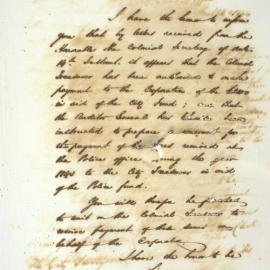 I have the honor to inform
you that by letter received from the
Honorable the Colonial Secretary of date
14th Instant, it appears that the Colonial
Treasurer has been authorised to make
payment to the Corporation of the
in aid of the City Fund; and that
the Auditor General has been
instructed to prepare a warrant for
the payment of the received at
the Police Office during the year
to the City Treasurer in aid
of the Police fund.
You will therefore be pleased
to wait on the Colonial Treasurer to
receive payment of said sums on
behalf of the Corporation
I have the honor to be